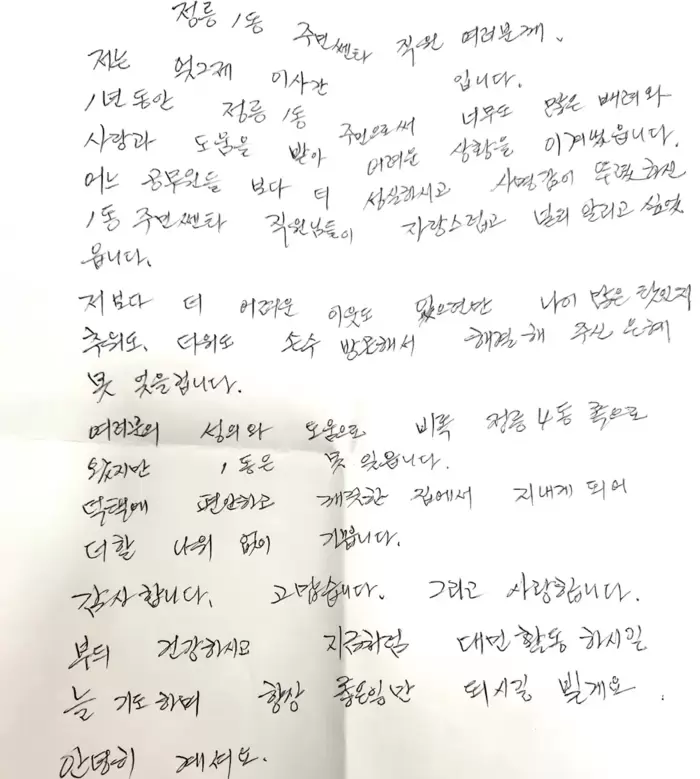 정릉 1동 주민쎈타 직원 여러분께.
저는 엊그제 이사간 입니다.
1년 동안 정릉 1동 주민으로써 너무도 많은 배려와
사랑과 도움을 받아 어려운 상황을 이겨냈읍니다.
어느 공무원들 보다 더 성실하시고 사명감이 뚜렷하신
1동 주민쎈타 직원님들이 자랑스럽고 널리 알리고 싶었
읍니다.
저보다 더 어려운 이웃도 많으련만 나이 많은 탓인지
추위도, 더위도 손수 방문해서 해결해 주신 은혜
못 잊을겁니다.
여러분의 성의와 도움으로 비록 정릉 4동 쪽으로
왔지만 1동은 못 잊읍니다.
덕택에 편안하고 깨끗한 집에서 지내게 되어
더할 나위 없이 기쁩니다.
감사합니다. 고맙습니다. 그리고 사랑합니다.
부듸 건강하시요 지금처럼 대민활동 하시길
늘 기도하며 항상 좋은일만 되시길 빌게요.
안녕히 계셔요.